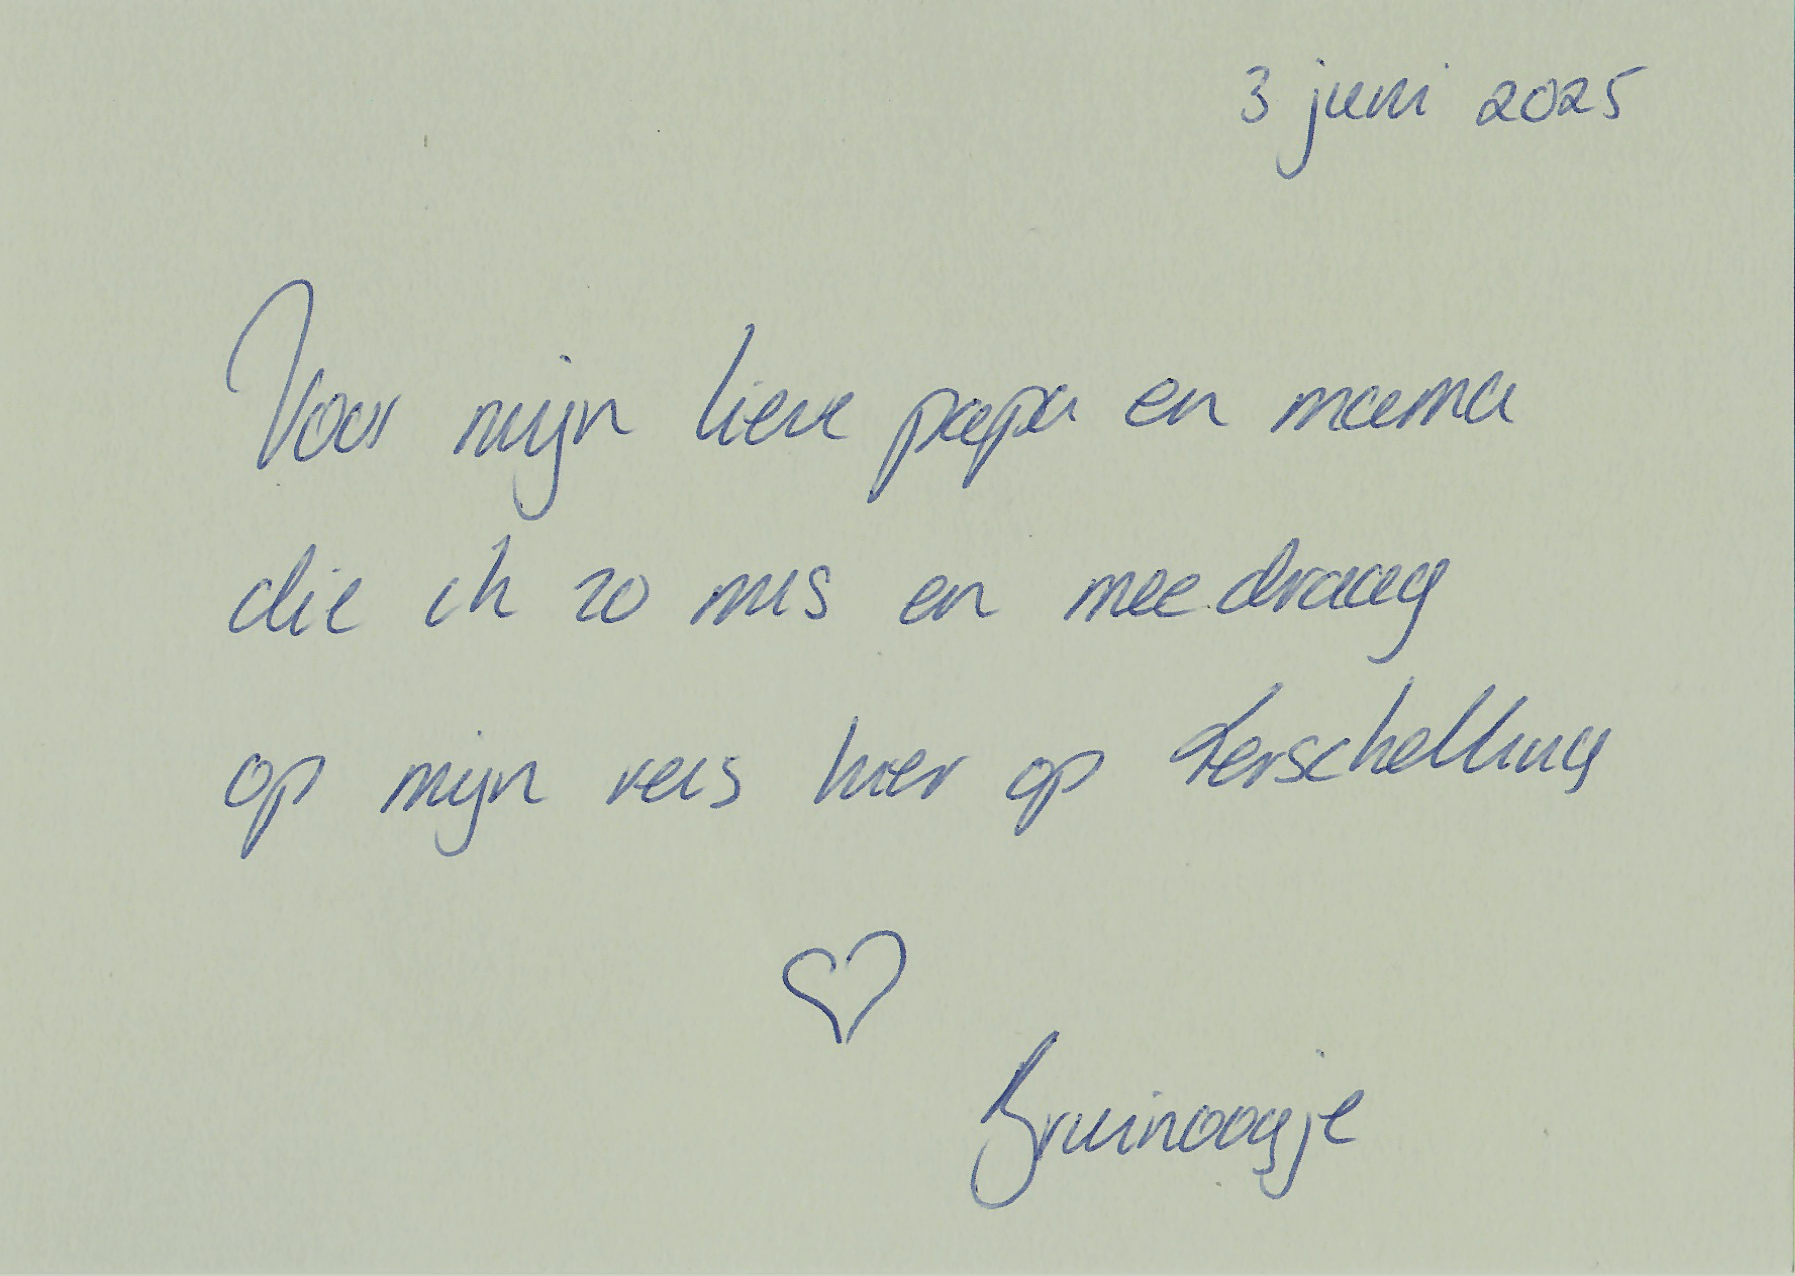 3 juni 2025
Voor mijn lieve papa en mama
die ik zo mis en meedraag
op mijn reis hier op Terschelling
Bruinoogje